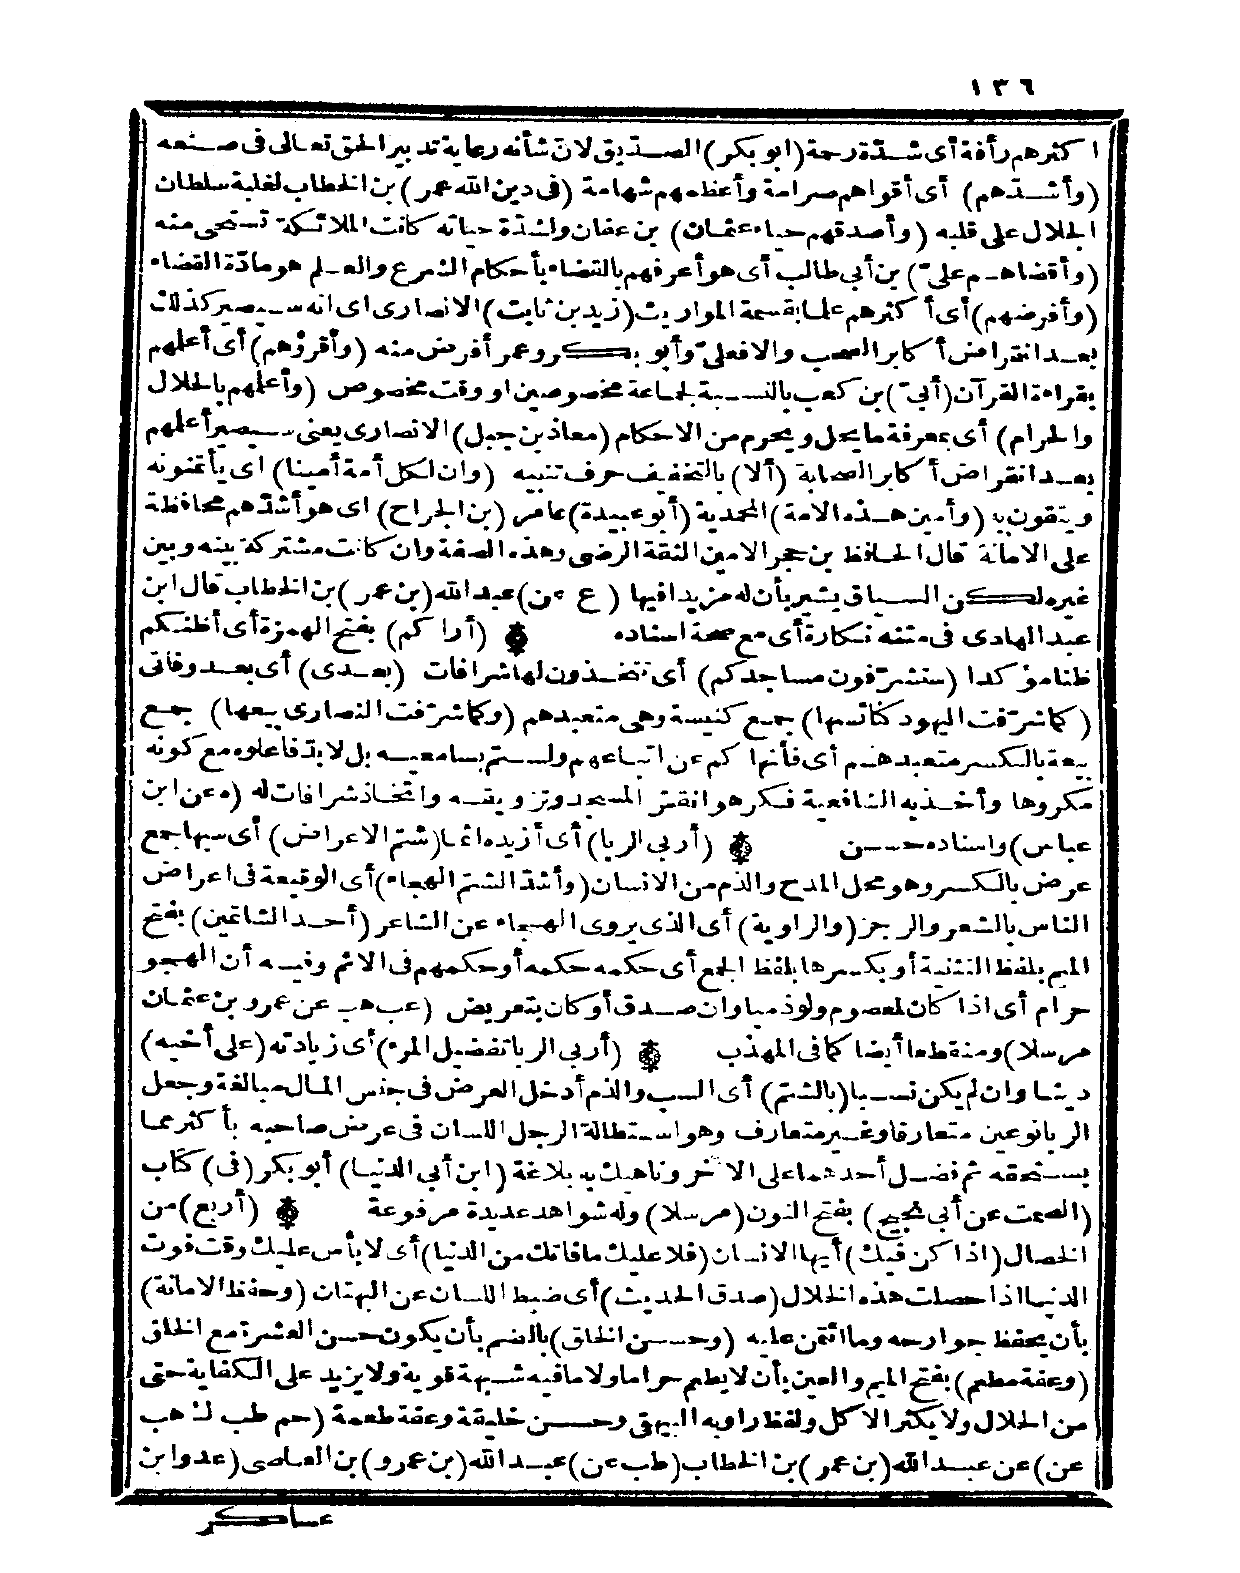 ١٣٦
اكثرهم رأفة أى شدة رحمة (ابو بكر) الصديق لان شأنه رعاية تدبير الحق تعالى فى صنعه
(وأشدهم) أى أقواهم صرامة وأعظمهم شهامة (فى دين الله عمر) بن الخطاب لغلبة سلطان
الجلال على قلبه (وأصدقهم حياء عثمان) بن عفان ولشدة حيائه كانت الملائكة تستحى منه
(وأقضاهم على) بن أبى طالب أى هو أعرفهم بالقضاء بأحكام الشرع والعلم هو مادة القضاء
(وأفرضهم) أى أكثرهم علما بقسمة المواريث (زيد بن ثابت) الانصارى اى انه سيصير كذلك
بعد انقراض أكابر الصحب والا فعلىّ وأبو بكر وعمر أفرض منه (وأقرؤهم) أى أعلمهم
بقراءة القرآن (أبىّ) بن كعب بالنسبة لجماعة مخصوصين او وقت مخصوص (وأعلمهم بالحلال
والحرام) أى بمعرفة ما يحل ويحرم من الاحكام (معاذ بن جبل) الانصارى يعنى سيصير أعلمهم
بعد انقراض أكابر الصحابة (ألا) بالتخفيف حرف تنبيه (وان لكل أمة أمينا) اى يأتمنونه
ويثقون به (وأمين هذه الامة) المحمدية (أبو عبيدة) عامر (بن الجراح) اى هو أشدهم محافظة
على الامانة قال الحافظ بن حجر الامين الثقة الرضى وهذه الصفة وان كانت مشتركة بينه وبين
غيره لكن السياق يشير بأن له مزيدا فيها (ع عن) عبد الله (بن عمر) بن الخطاب قال ابن
عبد الهادى فى متنه نكارة أى مع صحة اسناده (أراكم) بفتح الهمزة أى أظنكم
ظنا مؤكدا (ستشرّفون مساجدكم) أى تتخذون لها شرافات (بعدى) أى بعد وفاتى
(كما شرّفت اليهود كنائسها) جمع كنيسة وهى متعبدهم (وكما شرّفت النصارى بيعها) جمع
بيعة بالكسر متعبدهم أى فأنها كم عن اتباعهم ولستم بسامعيه بل لا بدّ فاعلوه مع كونه
مكروها وأخذ به الشافعية فكرهوا نقش المسجد وتزويقه واتخاذ شرافات له (ه عن ابن
عباس) واسناده حسن (أربى الربا) أى أزيده اثما (شتم الاعراض) أى سبها جمع
عرض بالكسر وهو محل المدح والذم من الانسان (وأشدّ الشتم الهجاء) أى الوقيعة فى اعراض
الناس بالشعر والرجز (والراوية) أى الذى يروى الهجاء عن الشاعر (أحد الشاتمين) بفتح
الميم بلفظ التثنية أو بكسرها بلفظ الجمع أى حكمه حكمه أو حكمهم فى الاثم وفيه أن الهجو
حرام أى اذا كان لمعصوم ولو ذميا وان صدق أو كان بتعريض (عب هب عن عمرو بن عثمان
مرسلا) ومنقطعا أيضا كما فى المهذب (أربى الربا تفضيل المرء) أى زيادته (على أخيه)
دينا وان لم يكن نسبا (بالشتم) أى السب والذم أدخل العرض فى جنس المال مبالغة وجعل
الربا نوعين متعارفا وغير متعارف وهو استطالة الرجل اللسان فى عرض صاحبه بأكثر مما
يستحقه ثم فضل أحدهما على الاخر وناهيك به بلاغة (ابن أبى الدنيا) أبو بكر (فى) كتاب
(الصمت عن أبى نجيح) بفتح النون (مرسلا) وله شواهد عديدة مرفوعة (أربع) من
الخصال (اذا كن فيك) أيها الانسان (فلا عليك ما فاتك من الدنيا) أى لا بأس عليك وقت فوت
الدنيا اذا حصلت هذه الخلال (صدق الحديث) أى ضبط اللسان عن البهتان (وحفظ الامانة)
بأن يحفظ جوارحه وما ائتمن عليه (وحسن الخلق) بالضم بأن يكون حسن العشرة مع الخلق
(وعفة مطعم) بفتح الميم والعين بأن لا يطعم حراما ولا ما فيه شبهة قوية ولا يزيد على الكفاية حتى
من الحلال ولا يكثر الاكل ولفظ راويه البيهقى وحسن خليقة وعفة طعمة (حم طب ك هب
عن) عن عبد الله (بن عمر) بن الخطاب (طب عن) عبد الله (بن عمرو) بن العاصى (عد وابن
عساكر